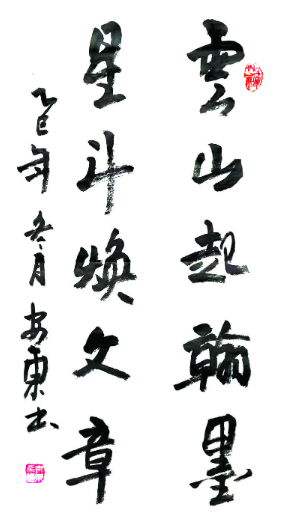 雲山起翰墨
星斗焕文章
乙巳年冬月安東书